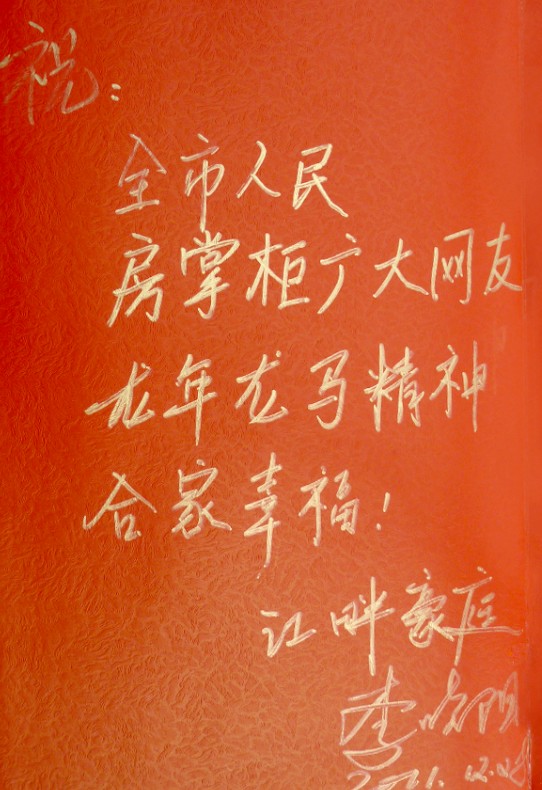 祝：
全市人民
房掌柜广大网友
龙年龙马精神
合家幸福！
江畔豪庭
李